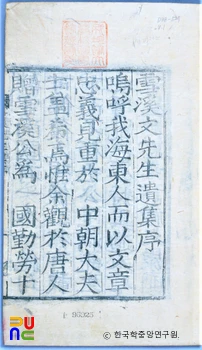 雲溪文先生遺集序
嗚呼我海東人而以文章
忠義見重於 中朝大夫
士固希焉惟余觀於唐人
贈雲溪公爲 國勤勞十
한국학중앙연구원